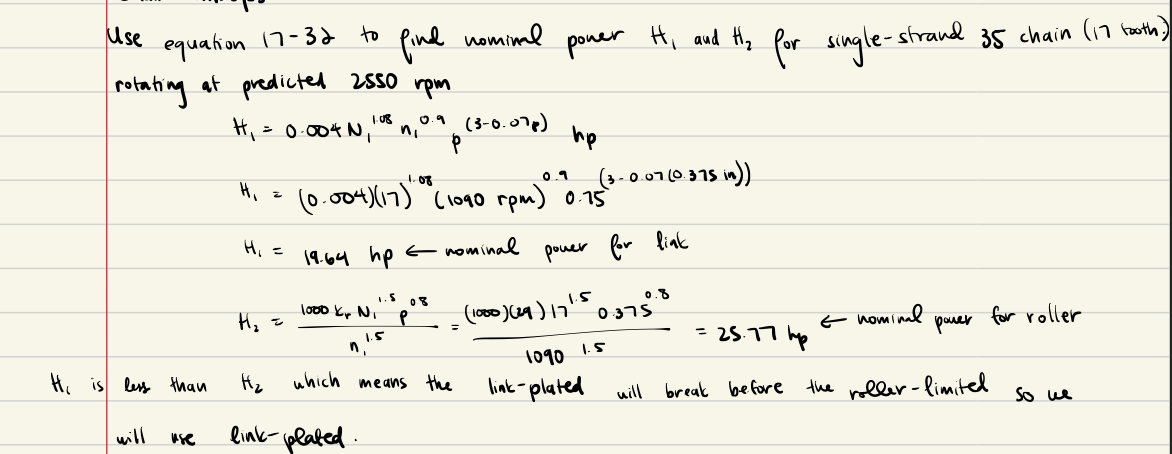 Use equation 17-32 to find nominal power H₁ and H₂ for single-strand 35 chain (17 tooth)
rotating at predicted 2550 rpm
H₁ = 0.004 N₁^1.08 n₁^0.9 p^(3-0.07p) hp
H₁ = (0.004)(17)^1.08 (1090 rpm)^0.9 0.75^(3-0.07(0.375 in))
H₁ = 19.64 hp ← nominal power for link
H₂ = 1000 Kr N₁^1.5 p^0.8 / n₁^1.5 = (1000)(29) 17^1.5 0.375^0.8 / 1090^1.5 = 25.77 hp ← nominal power for roller
H₁ is less than H₂ which means the link-plated will break before the roller-limited so we
will use link-plated.